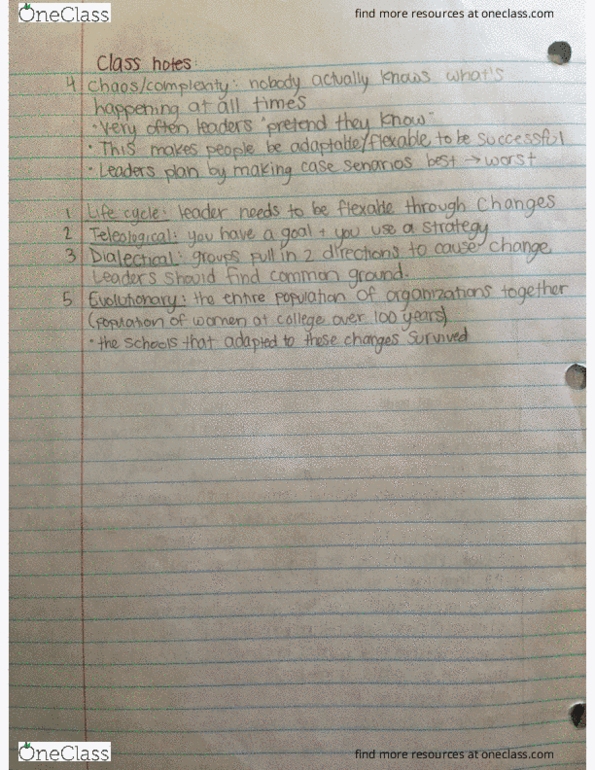 OneClass
find more resources at oneclass.com
Class notes:
4 Chaos/complenty: nobody actually knows what's
happening at all times
• Very often leaders "pretend they know"
• This makes people be adaptable/flexable to be successful
• Leaders plan by making case senarios best → worst
1 Life cycle: leader needs to be flexable through changes
2 Teleological: you have a goal + you use a strategy
3 Dialectical: groups pull in 2 directions to cause change.
Leaders should find common ground.
5 Evolutionary: the entire population of organizations together
(population of women at college over 100 years)
• the schools that adapted to these changes survived
OneClass
find more resources at oneclass.com